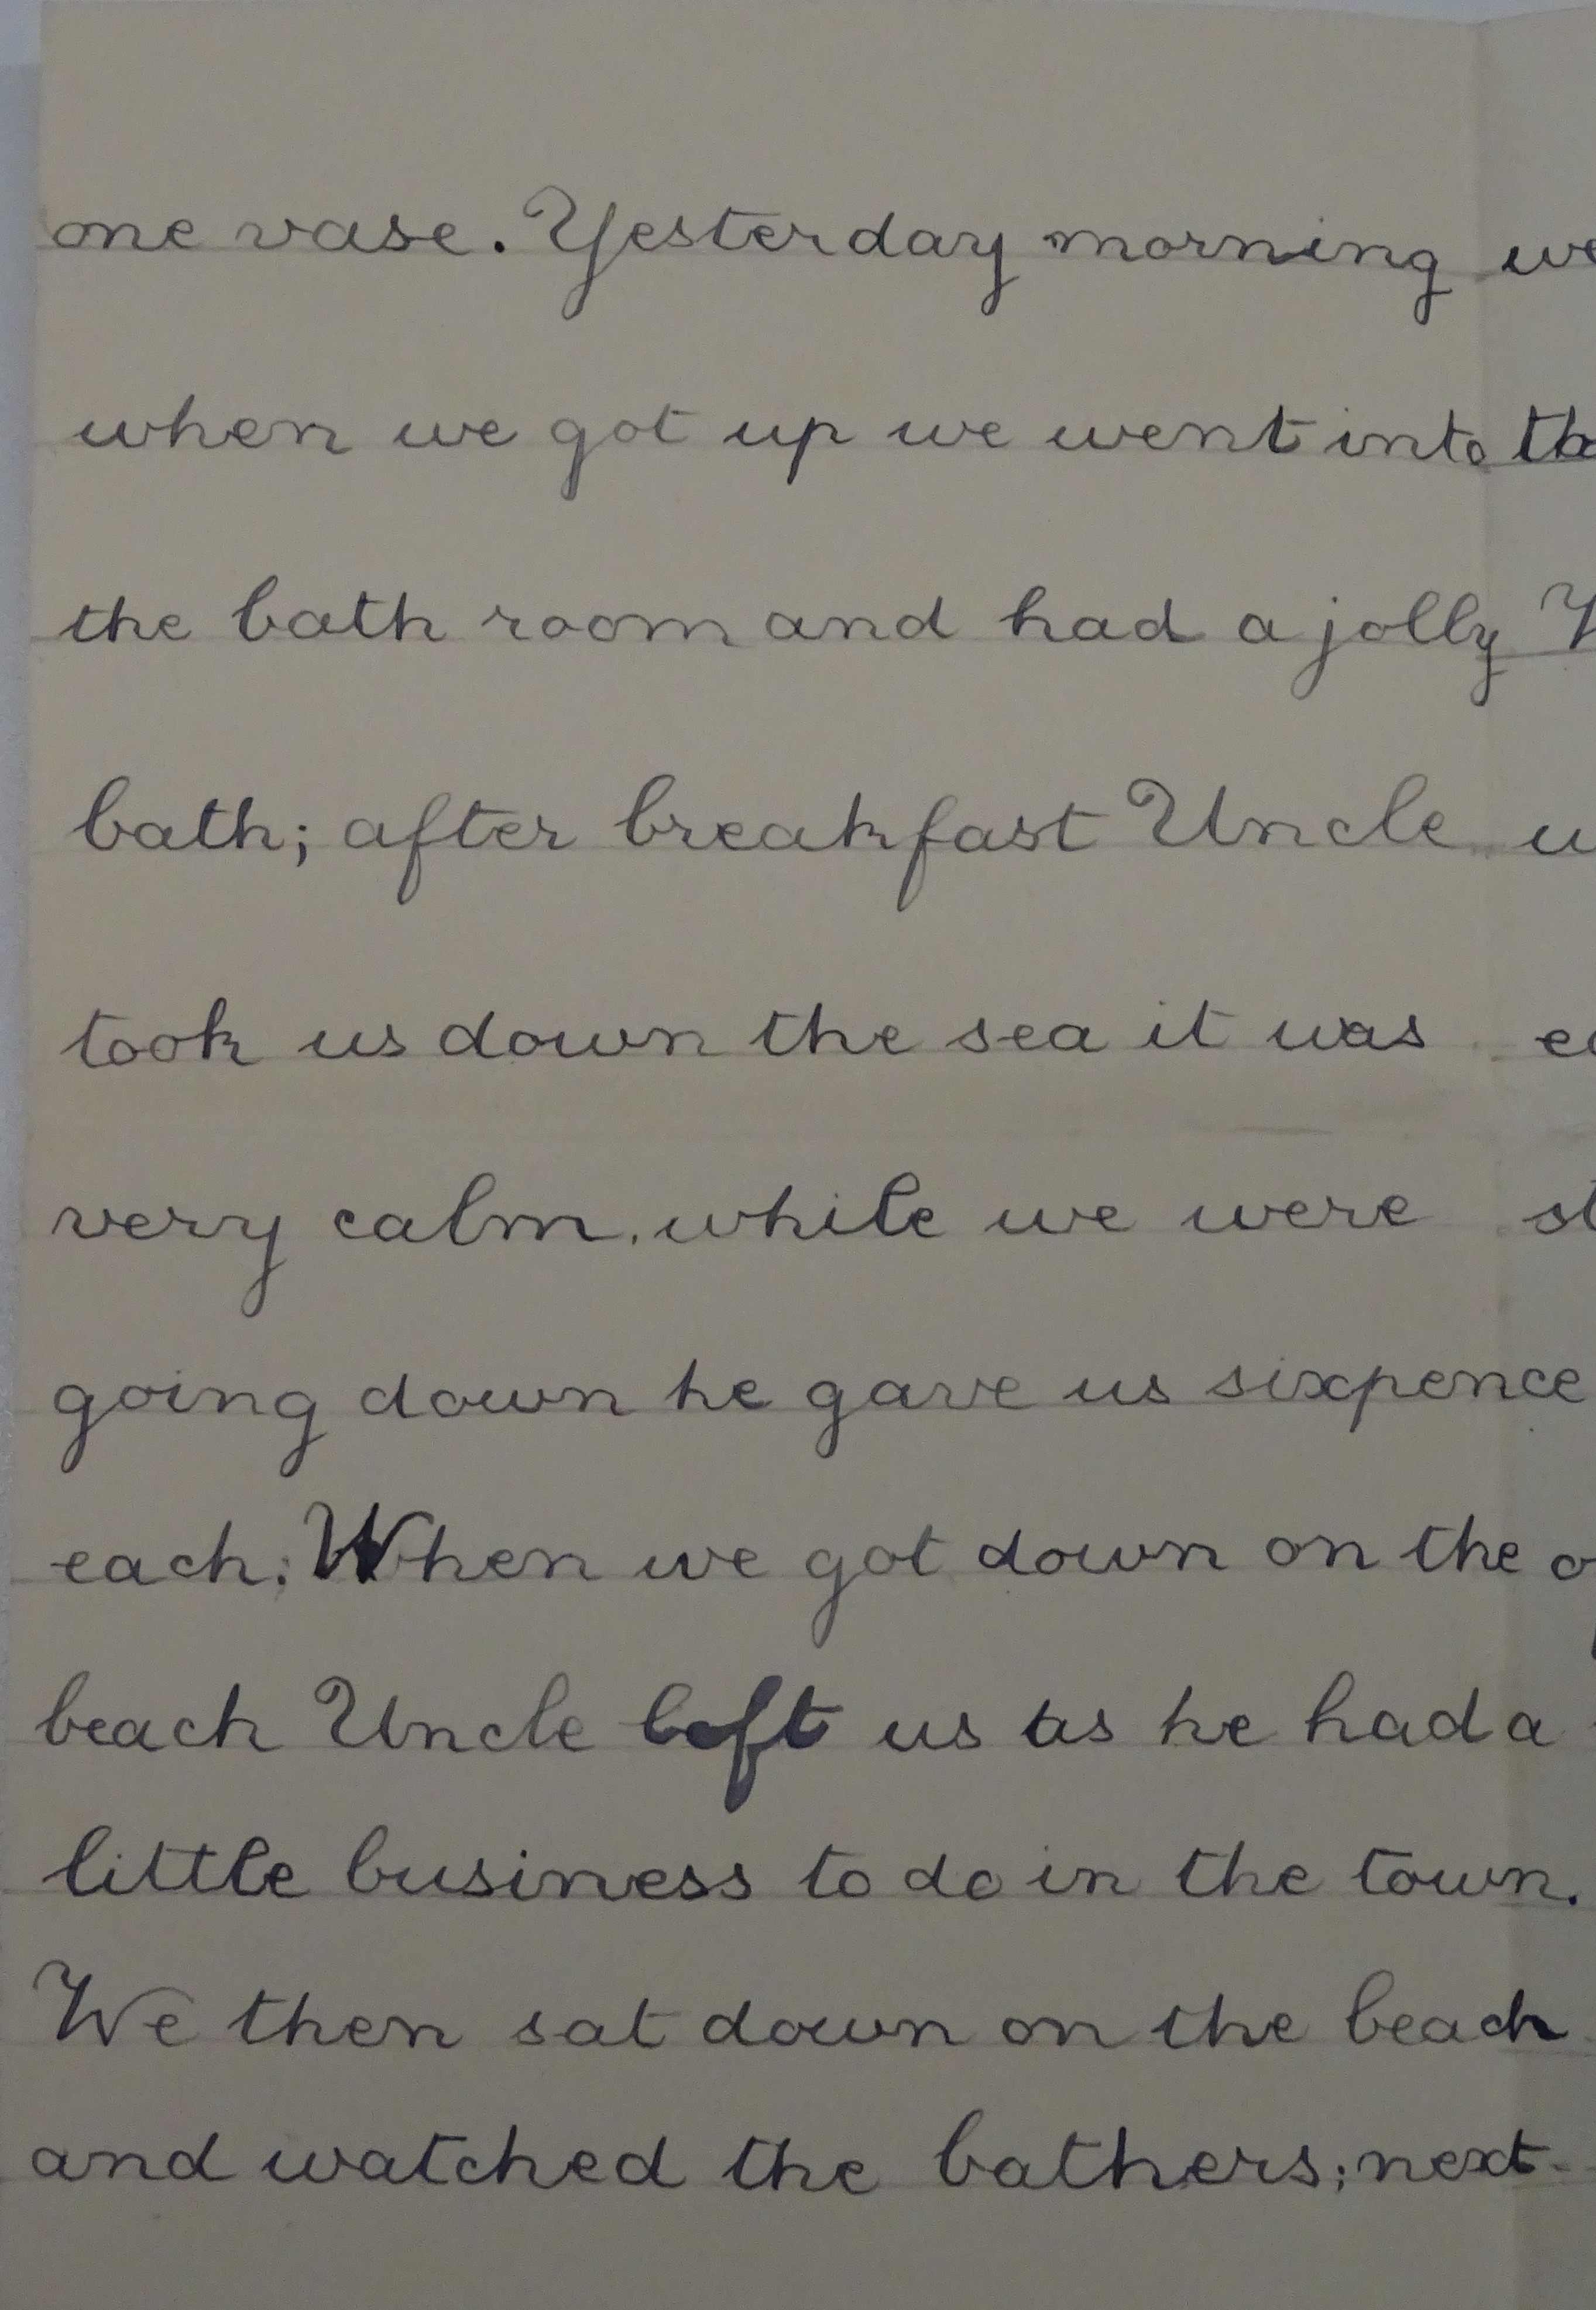 one vase. Yesterday morning we
when we got up we went into
the bath room and had a jolly
bath; after breakfast Uncle
took us down the sea it was
very calm. while we were
going down he gave us sixpence
each. When we got down on the
beach Uncle left us as he had a
little business to do in the town.
We then sat down on the beach
and watched the bathers; next